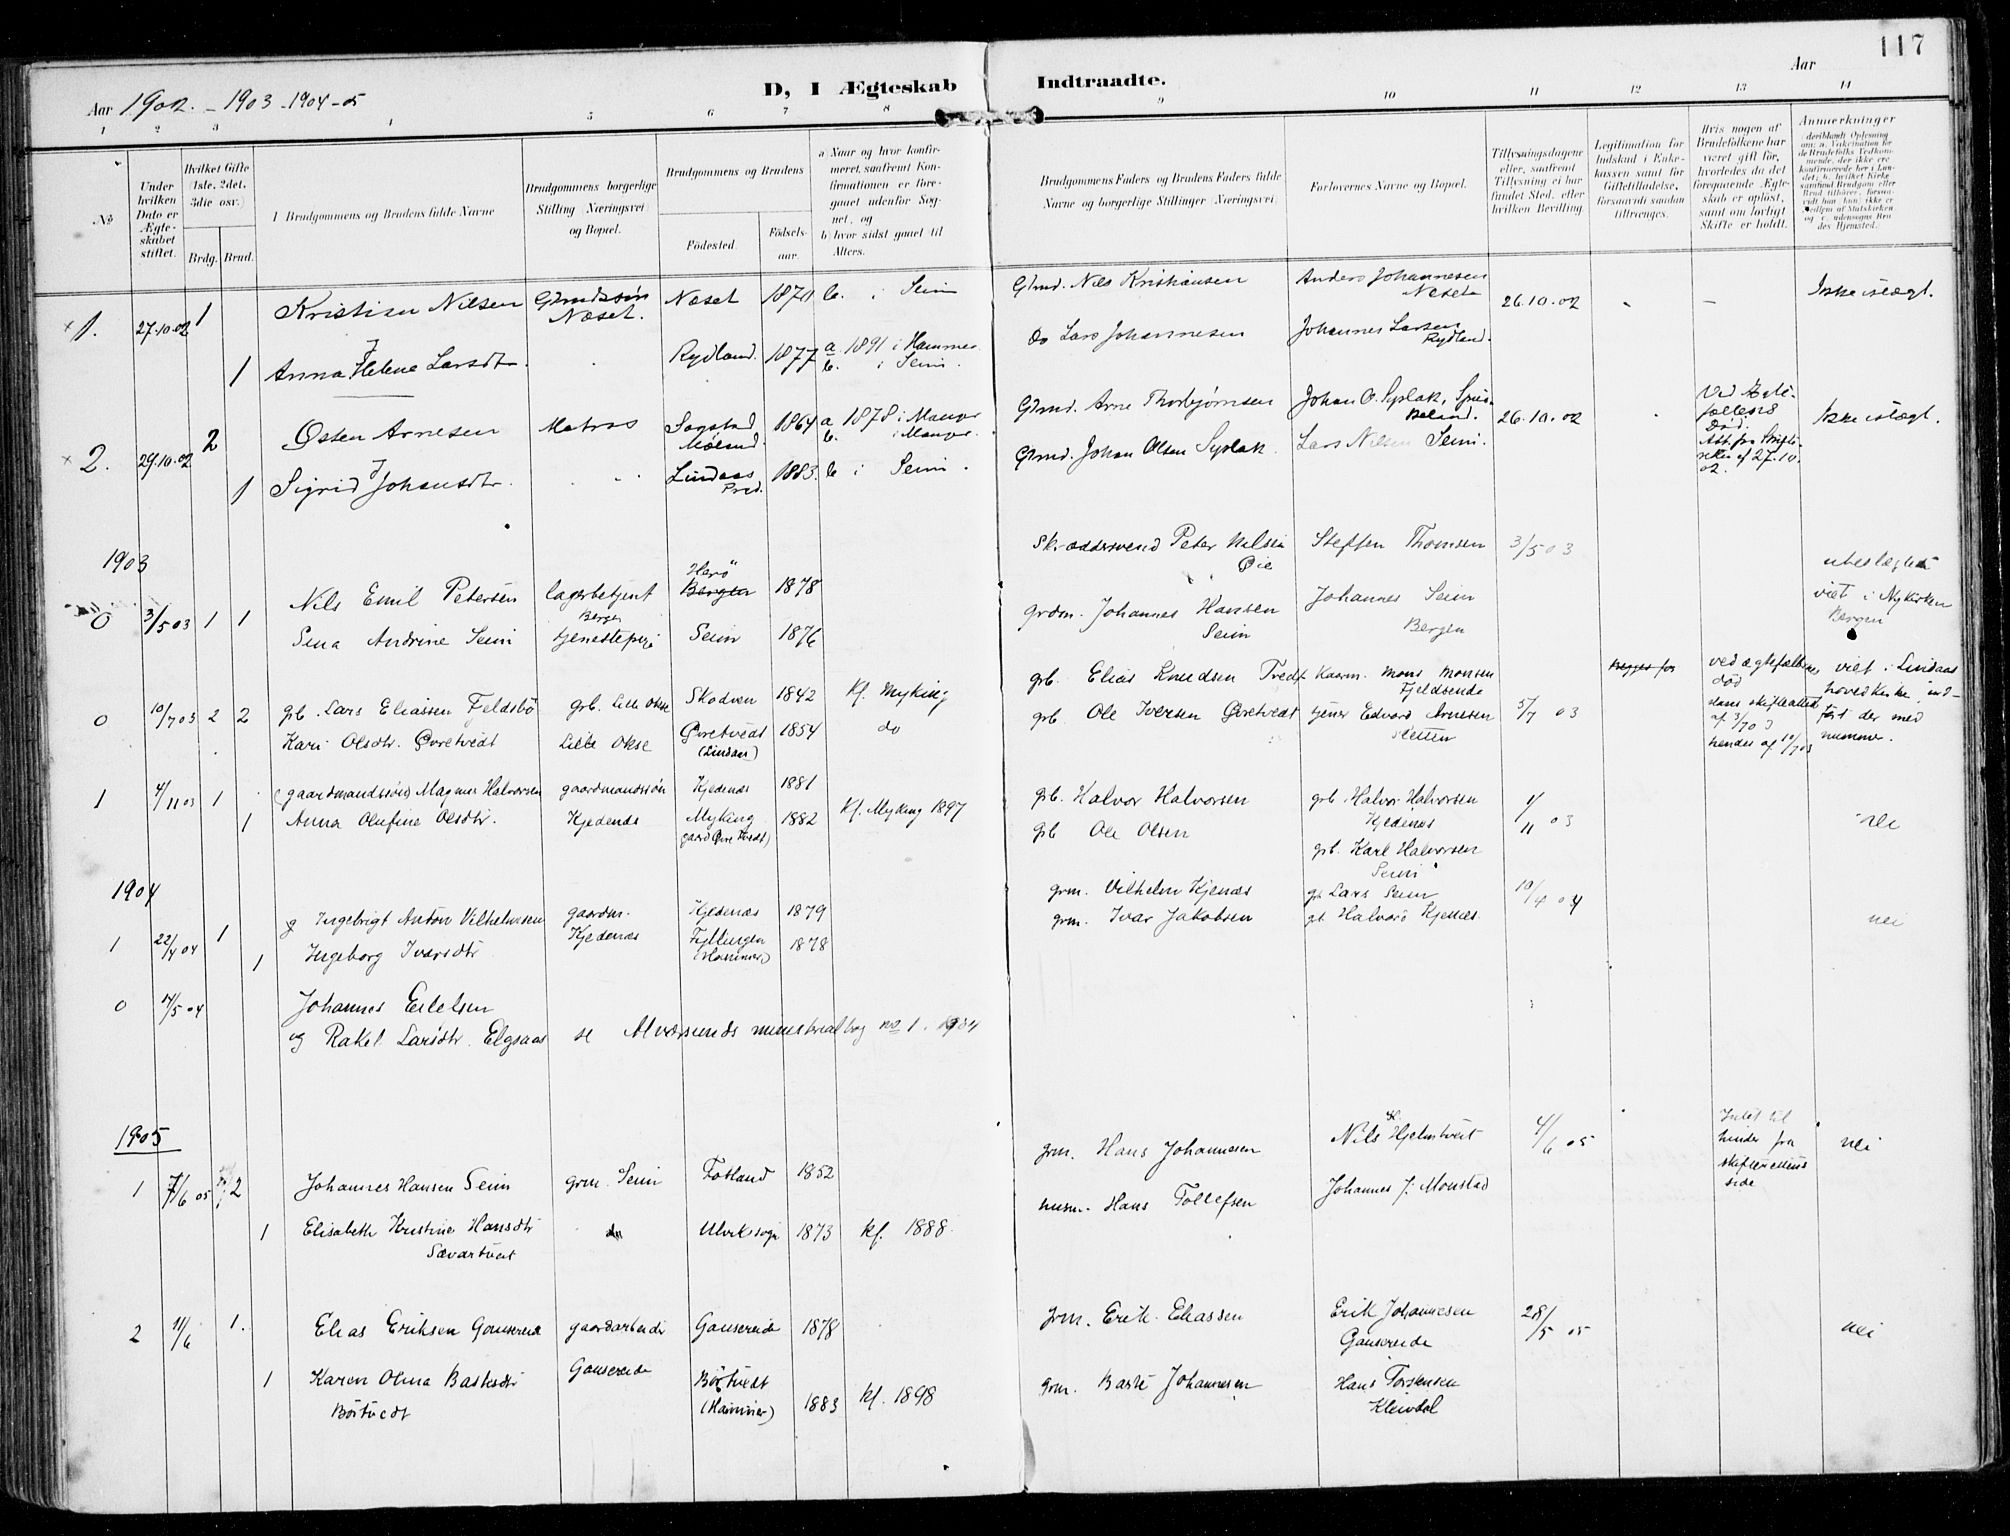 117
Aar 1902. - 1903 - 1904 - 05
D, I Ægteskab Indtraadte.
Aar
1 2 3 4 5 6 7 8 9 10 11 12 13 14
No
Under hvilken Dato er Ægteskabet stiftet.
Hvilket Gifte (1ste, 2det, 3die osv.)
Brdg. Brud.
Brudgommens og Brudens fulde Navne
Brudgommens borgerlige Stilling (Næringsvei) og Bopæl.
Brudgommens og Brudens
Fødested.
Fødselsaar.
a) Naar og hvor konfirmeret, saafremt Konfirmationen er foregaaet udenfor Sognet, og
b) hvor sidst gaaet til Alters.
Brudgommens Faders og Brudens Faders fulde Navne og borgerlige Stillinger (Næringsvei)
Forlovernes Navne og Bopæl.
Tillysningsdagene eller, saafremt Tillysning ei har fundet Sted, efter hvilken Bevilling.
Legitimation for Indskud i Enkekassen samt for Giftetilladelse, forsaavidt saadan tiltrænges.
Hvis nogen af Brudefolkene har været gift før, hvorledes da det foregaaende Ægteskab er opløst, samt om lovligt Skifte er holdt.
Anmærkninger
1. 27.10.02 1 Kristian Nilsen Gbmdssøn Næset. Næset 1870 b. i Seim Gbmd. Nils Kristiansen Anders Johannesen Næset 26.10.02 - Ikke i slægt.
1 Anna Helene Larsdtr. Rydland. 1877 a 1891 i Hammer b. i Seim. Do Lars Johannesen Johannes Larsen Rydland.
2. 29.10.02 2 Østen Arnesen Matros Sagstad Mæland. 1864 a 1878 i Manger b. i Manger. Gbmd. Arne Thorbjørnsen Johan O. Syslak, 26.10.02 Ved Ægtefælles Død. Ikke i slægt.
1 Sigrid Johansdtr. Lindaas Pred. 1883. b i Seim. Gbmd. Johan Olsen Syslak Lars Nilsen Seim.
1903
0 3/5 03 1 1 Nils Emil Petersen lagerbetjent Bergen Herø Bergen 1878 Skræddersvend Peter Nilsen Øie Steffen Thomsen 3/5 03 ubeslægtet
Sena Andrine Seim tjenestepige Seim 1876 grdm. Johannes Hansen Seim Johannes Seim Bergen viet i Nykirken Bergen
0 10/7 03 2 2 gb. Lars Eliassen Feldsbø grb. Lille Okse Skodven 1842 Kf. Myking grb. Elias Knudsen Tvedt Kaarm. Mons Monsen Fjeldsende 5/7 03 ved ægtefælles død viet i Lindaas hovedkirke indført der med nummer.
Kari Olsdtr. Øvretvedt Lille Okse Øvretvedt (Lindaas) 1854 do grb. Ole Iversen Øvretvedt tjener Edvard Arnesen Sletten
1 4/11 03 1 gaardmandssøn Magnus Halvorsen gaardmandssøn Kjedenæs 1881 grb. Halvor Halvorsen grb. Halvor Halvorsen Kjedenæs 1/11 03
1 Anna Olufine Olsdtr. Kjedenæs Myking gaard Øvre Kvedt) 1882 Kf. Myking 1897 grb Ole Olsen grb. Karl Halvorsen Seim nei
1904
1 22/4 04 1 Ingebrigt Anton Vilhelmsen gaardm. Kjedenæs Kjedenæs 1879 grm. Vilhelm Kjenæs g. Lars Seim 10/4 04
1 Ingeborg Ivarsdtr Fyllingen (Hammer) 1878 grm. Ivar Jakobsen gb. Halvor Kjenæs. nei
0 14/5 04 Johannes Eilelsen
og Rakel Larsdtr. Elgsaas se Alværsunds ministerialbog no 1. 1904
1905
1 7/6 05 2 Johannes Hansen Seim grm. Seim Fotland 1852 grm. Hans Johannesen Nils Hjelmtveit 4/6 05 Intet til hinder fra skifterettens side nei
1 Elisabeth Kristine Hansdtr Sævartveit Ulviksogn 1873 kf. 1888. husm. Hans Tollefsen Johannes J. Monstad
2 11/6 1. Elias Eriksen Gausereide gaardarbeider Gausereide 1878 grm. Erik Eliassen Erik Johannesen Gausereide 28/5 05 nei
1 Karen Olina Bastesdtr Børtvedt Gausereide Børtvedt (Hammer) 1883 kf. 1898 grm. Baste Johannesen Hans Torstensen Kleivdal